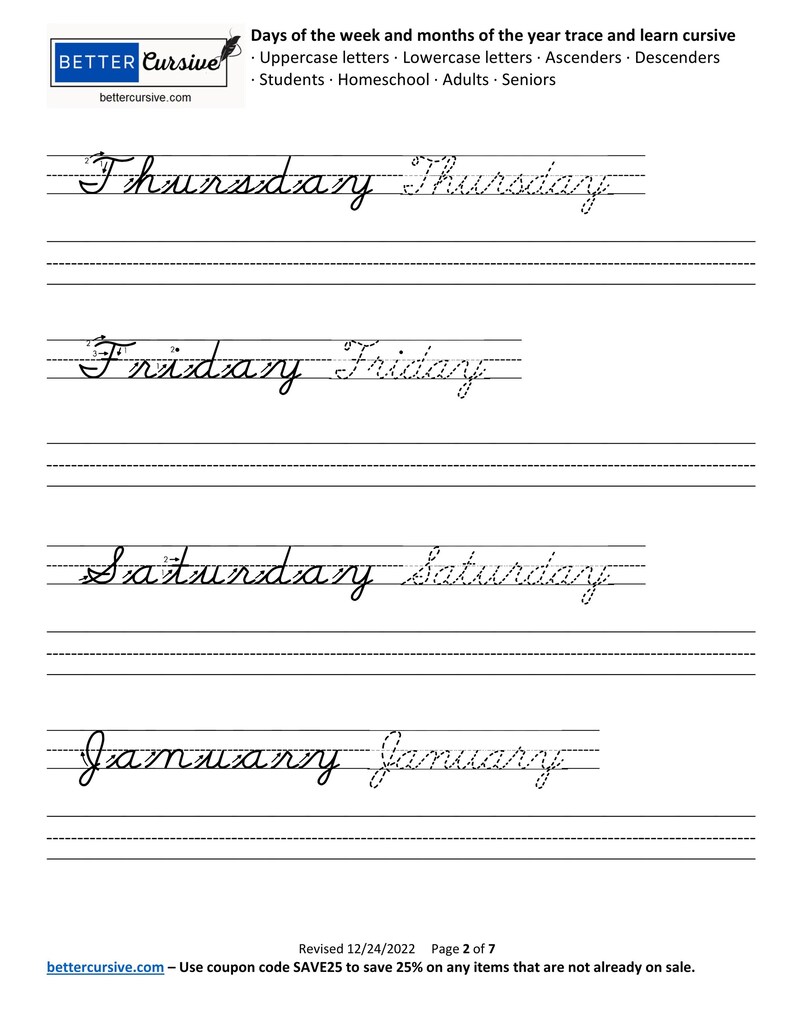 Days of the week and months of the year trace and learn cursive
BETTER Cursive
· Uppercase letters · Lowercase letters · Ascenders · Descenders
· Students · Homeschool · Adults · Seniors
bettercursive.com
Thursday Thursday
Friday Friday
Saturday Saturday
January January
Revised 12/24/2022 Page 2 of 7
bettercursive.com – Use coupon code SAVE25 to save 25% on any items that are not already on sale.